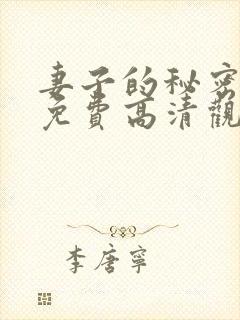 妻子的秘密
免費高清觀
李唐寧